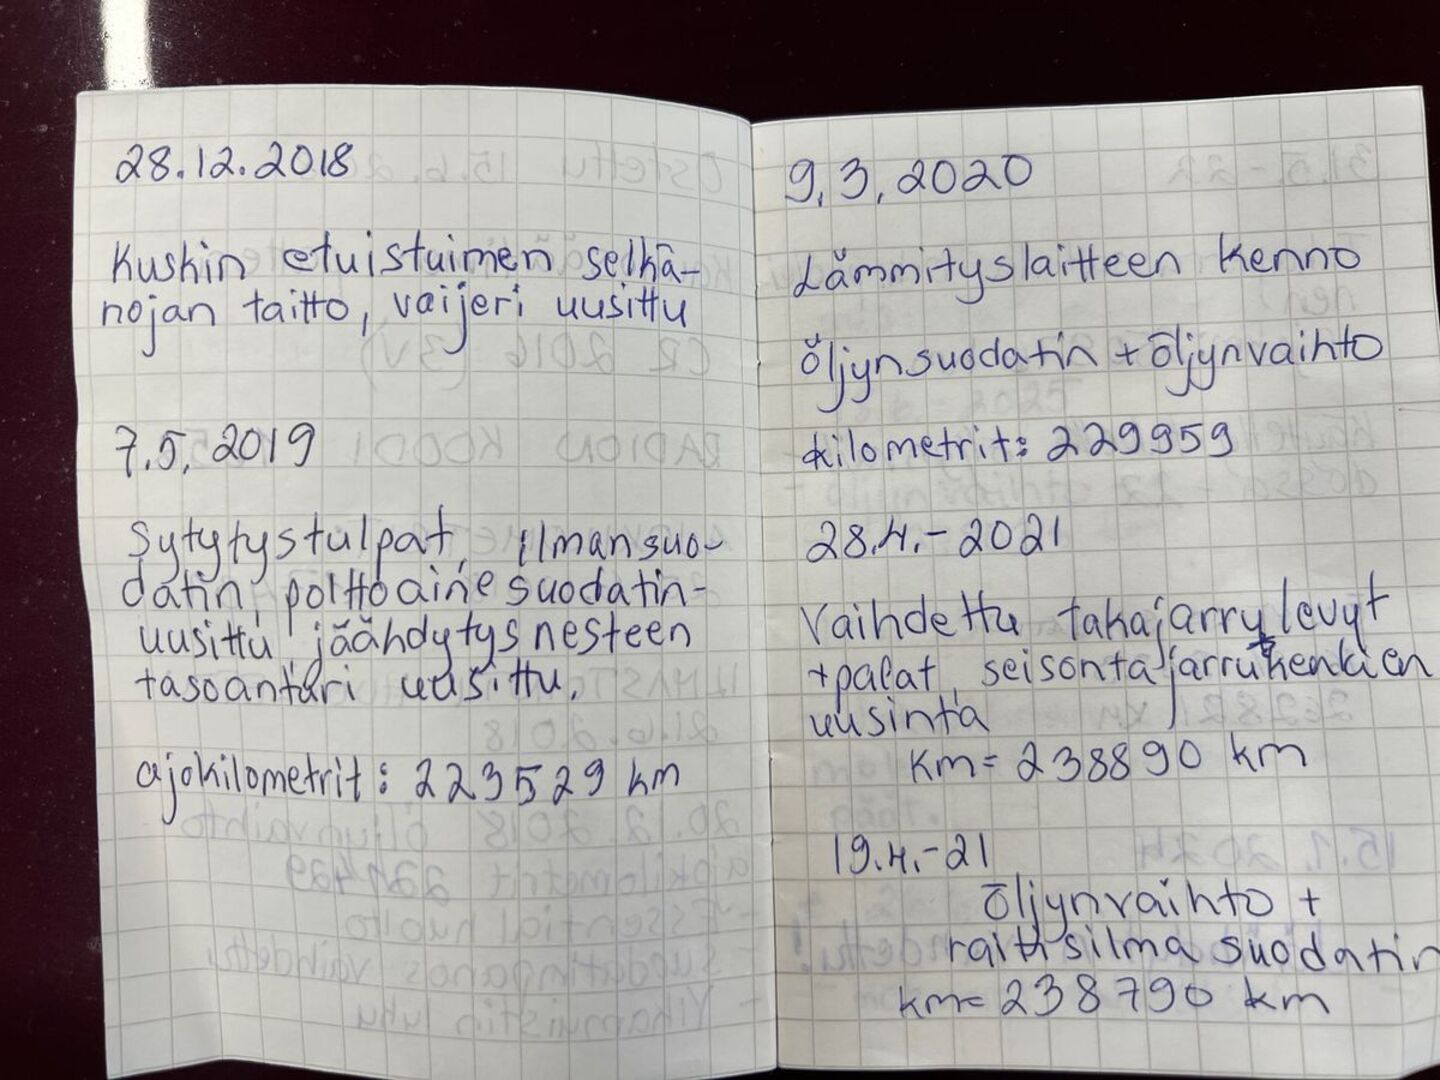 28.12.2018
Kuskin etuistuimen selkä-
nojan taitto, vaijeri uusittu
7.5.2019
Sytytystulpat, ilmansuo-
datin, polttoainesuodatin-
uusittu, jäähdytysnesteen
tasoanturi uusittu.
ajokilometrit: 223529 km
9.3.2020
Lämmityslaitteen kenno
öljynsuodatin + öljynvaihto
kilometrit: 229959
28.4.-2021
Vaihdettu takajarrylevyt
+palat, seisontajarrukenkien
uusinta
km= 238890 km
19.4.-21
öljynvaihto +
raitisilma suodatin
km= 238790 km